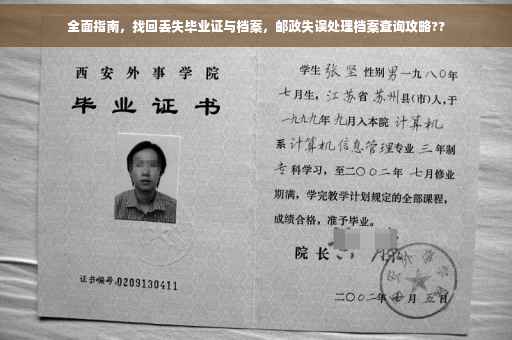 全面指南，找回丢失毕业证与档案，邮政失误处理档案查询攻略??
西安外事学院
毕业证书
证书编号:0209130411
学生 张坚 性别 男 一九八〇年
七月生，江苏省苏州县(市)人,于
一九九九年九月入本院 计算机
系 计算机信息管理专业 三 年制
专科学习，至二〇〇二年 七月修业
期满，学完教学计划规定的全部课程，
成绩合格，准予毕业。
院长
二〇〇二年 月五日